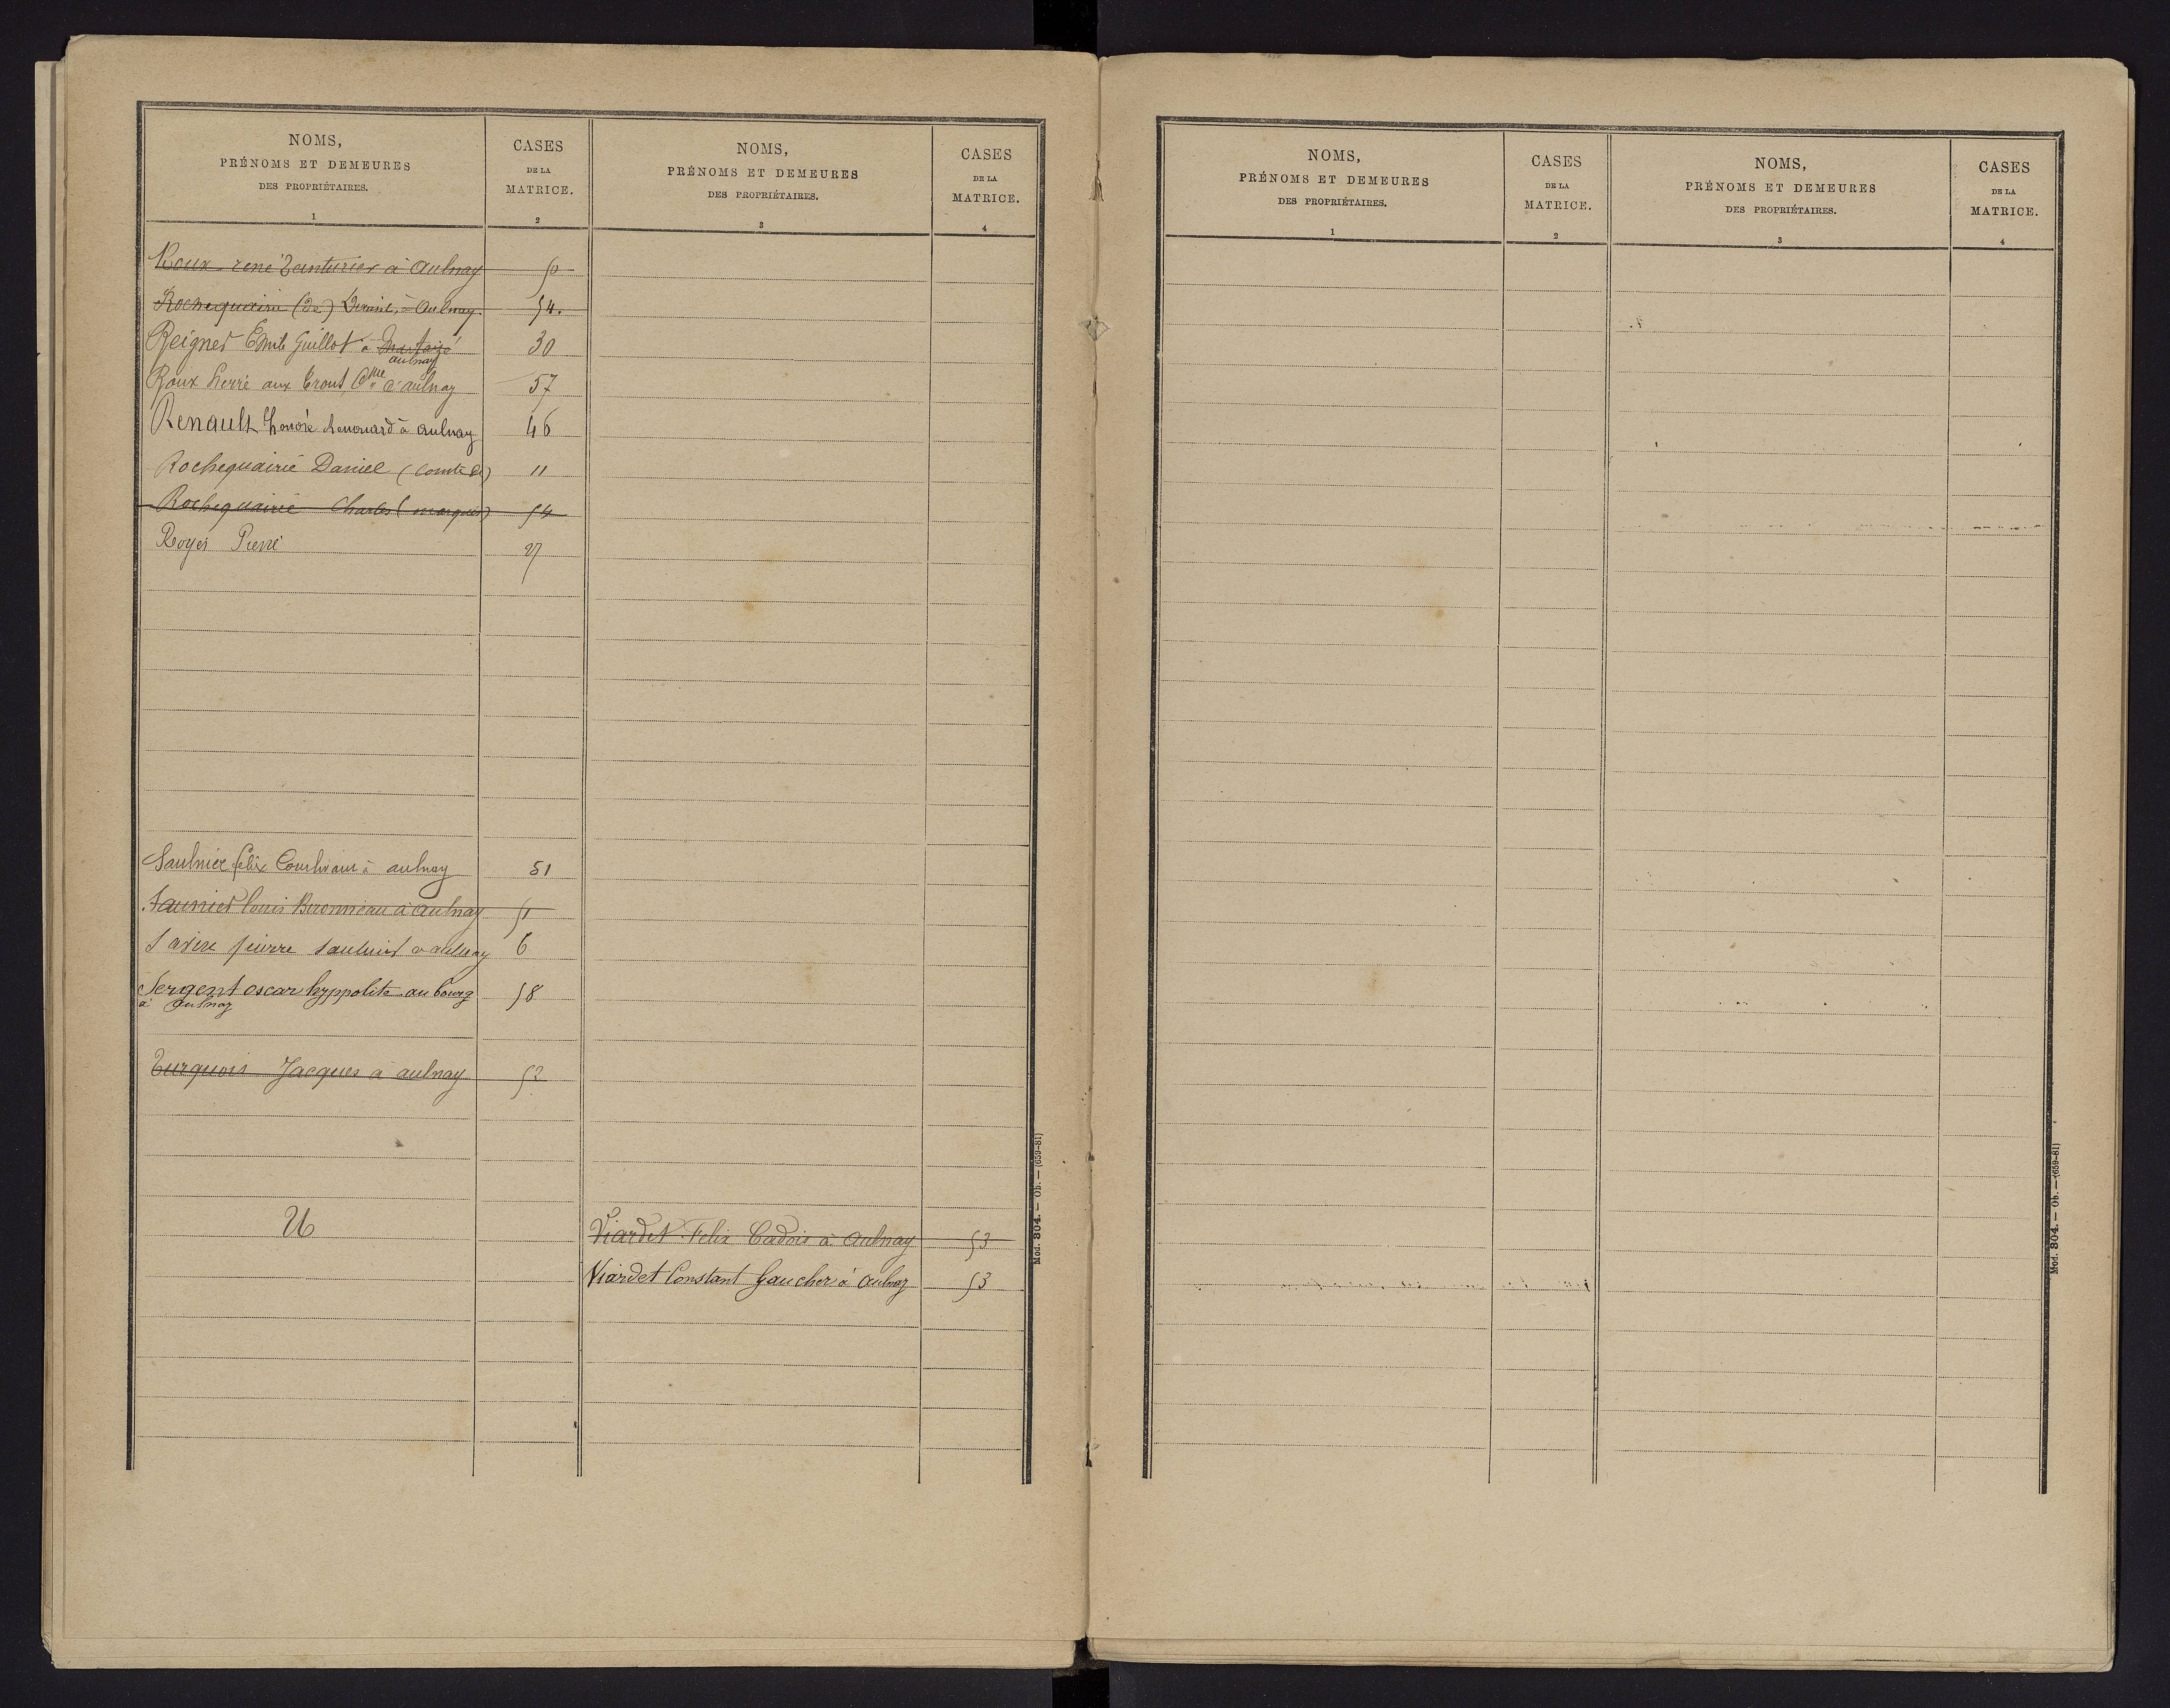 NOMS,
PRÉNOMS ET DEMEURES
DES PROPRIÉTAIRES.
1
CASES
DE LA
MATRICE.
2
NOMS,
PRÉNOMS ET DEMEURES
DES PROPRIÉTAIRES.
3
CASES
DE LA
MATRICE.
4
Roux rené à Aulnay 50
Rochequairie (de) à Aulnay 54.
Reignier Emile Guillot à Martaizé 30
aulnay
Roux Pierre aux Crout Cne d'aulnay 57
Renault honoré Renouard à aulnay 46
Rochequairie Daniel (comte de) 11
Rochequairie Charles (marquis) 54
Royer Pierre 27
Saulnier felix à aulnay 51
Saunier louis Bironneau à Aulnay 51
Savin pierre saulnier à aulnay 6
Sergent oscar hyppolite au bourg 58
à aulnay
Turquois Jacques à aulnay 52
U
Viardet Felix Cadois à Aulnay 53
Viardet Constant Gaucher à Aulnay 53
Mod. 804. — Ob. — (659-81)
NOMS,
PRÉNOMS ET DEMEURES
DES PROPRIÉTAIRES.
1
CASES
DE LA
MATRICE.
2
NOMS,
PRÉNOMS ET DEMEURES
DES PROPRIÉTAIRES.
3
CASES
DE LA
MATRICE.
4
Mod. 804. — Ob. — (659-81)